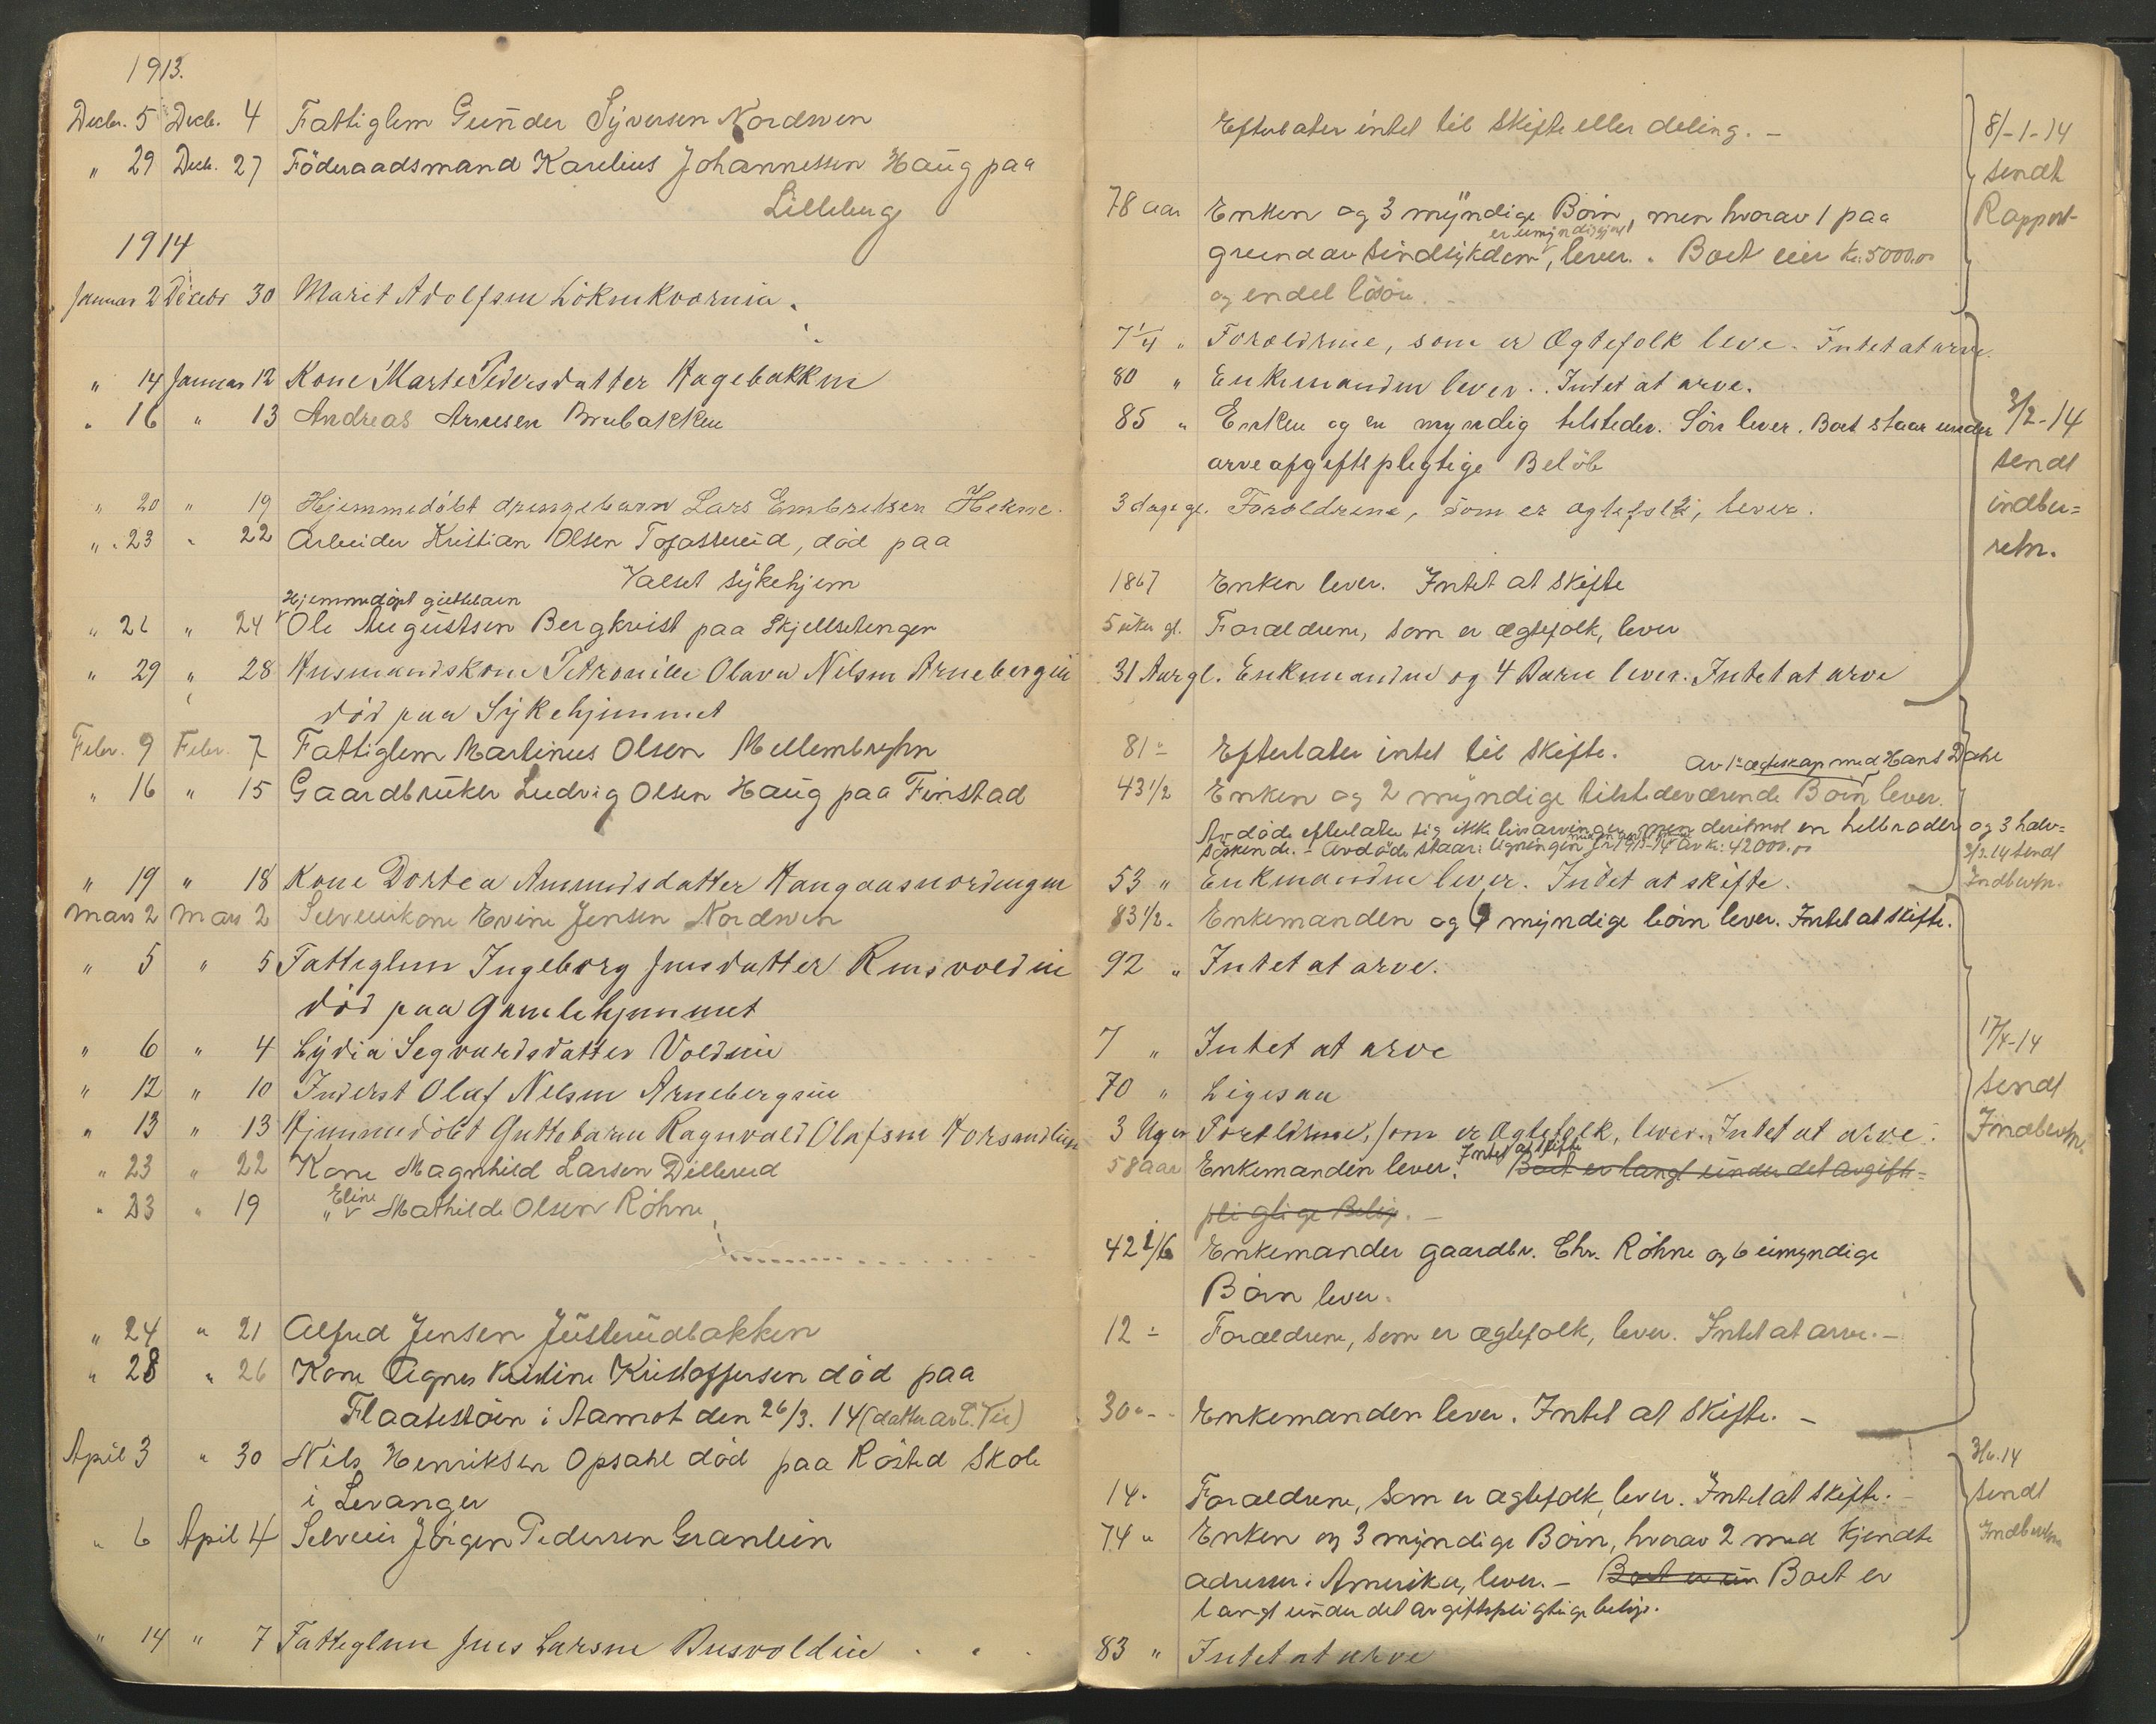 1913.
Decbr. 5 Decb. 4 Fattiglem Gunder Syversen Nordsven
" 29 Decb. 27 Föderaadsmand Karelius Johannessen Haug paa
Lilleberg
1914
Januar 2 Decebr 30 Marit Adolfsen
" 14 Januar 12 Kone Marte Pedersdatter Hagebakken
" 16 " 13 Andreas Arnesen Brubakken
" 20 " 19 Hjemmedöbt drengebarn Lars Embretsen
" 23 " 22 Arbeider Kristian Olsen död paa
sykehjem
Hjemmedöpt guttebarn
" " 24 Ole Augustsen Bergkvist paa
" 29 " 28 Husmandskone Petronille Olava Nilsen Arnebergeie
död paa Sykehjemmet
Febr. 9 Febr. 7 Fattiglem Martinus Olsen
" 16 " 15 Gaardbruker Ludvig Olsen Haug paa Finstad
" 19 " 18 Kone Dortea Amundsdatter
Mars 2 Mars 2 Selveierkone Evine Jensen Nordsven
" 5 " 5 Fattiglem Ingeborg Jensdatter
död paa Gamlehjemmet
" 6 " 4 Lydia Segvardsdatter Voldeie
" 12 " 10 Inderst Olaf Nilsen Arnebergseie
" 13 " 13 Hjemmedöbt Guttebarn Ragnvald Olafsen
" 23 " 22 Kone Magnhild Larsen Dillerud
Eline
" 23 " 19 " Mathilde Olsen Röhne
" 24 " 21 Alfred Jensen Justerudbakken
" 28 " 26 Kone Agnes Kristine Kristoffersen död paa
Flaatestöen i Aamot den 26/3. 14 (datter av
April 3 " 30 Nils Henriksen Opsahl död paa Röstad Skole
i Levanger
" 6 April 4 Selveier Jörgen Pedersen Granlien
" 14 " 7 Fattiglem Jens Larsen
Efterlater intet til Skifte eller deling. –
78 aar Enken og 3 myndige Börn, men hvorav 1 paa
er umyndiggjort
grund av Sindsykdom, lever. Boet eier kr. 5000.00
og endel lösöre. –
7 1/4 " Foreldrene, som er Ægtefolk leve. Intet at arve.
80 " Enkemanden lever. Intet at arve.
85 " Enken og en myndig tilstedev. Sön lever. Boet staar under
arveafgiftspligtige Belöb
3 dage gl. Foreldrene, som er ægtefolk, lever.
1867 Enken lever. Intet at Skifte
5 uker gl. Foreldrene, som er ægtefolk, lever
31 Aar gl. Enkemanden og 4 Barn lever. Intet at arve
81 " Efterlater intet til Skifte.
Av 1ste ægteskap med Hans Dahl
43 1/2 Enken og 2 myndige tilstedeværende Börn lever.
Avdöde efterlater sig ikke livsarvinger, men derimot en helbroder og 3 halv=
söskende. – Avdöde staar i ligningen for 1913-14 av kr. 42000.00
53 " Enkemanden lever. Intet at skifte.
83 1/2 " Enkemanden og myndige börn lever. Intet at skifte.
92 " Intet at arve.
7 " Intet at arve
70 " Ligesaa
3 Uger Foreldrene, som er Ægtefolk, lever. Intet at arve.
Intet at skifte
58 aar Enkemanden lever. Boet er langt under det avgifts=
pligtige Belöp. –
42 1/6 Enkemanden gaardbr. Chr. Röhne og 6 umyndige
Börn lever.
12 " Foreldrene, som er ægtefolk, lever. Intet at arve. –
30 " Enkemanden lever. Intet at Skifte. –
14 " Foreldrene, som er ægtefolk, lever. Intet at Skifte. –
74 " Enken og 3 myndige Börn, hvorav 2 med kjendte
adresser i Amerika, lever. – Boet er un Boet er
langt under det avgiftspligtige belöp.
83 " Intet at arve
8/-1-14
sendt
Rapport
3/2-14
sendt
indber=
retn.
3/3.14 sendt
Indberetn.
17/4-14
sendt
Indberetn.
sendt
Indberetn